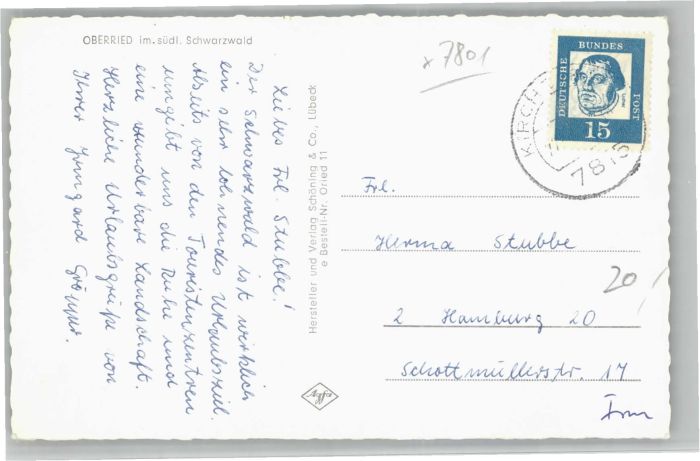 OBERRIED im südl. Schwarzwald
Liebes Frl. Stubbe!
Der Schwarzwald ist wirklich
ein sehr lohnendes Urlaubsziel.
Abseits von den Touristenzentren
umgibt uns die Ruhe und
eine wunderbare Landschaft.
Herzliche Urlaubsgrüße von
Ihrer Irmgard
Hersteller und Verlag Schöning & Co., Lübeck
e Bestell-Nr. Oried 11
Agfa
x 7801
DEUTSCHE BUNDES POST
15
KIRCH
7815
Frl.
Herma Stubbe
2 Hamburg 20
Schottmüllerstr. 17
20,